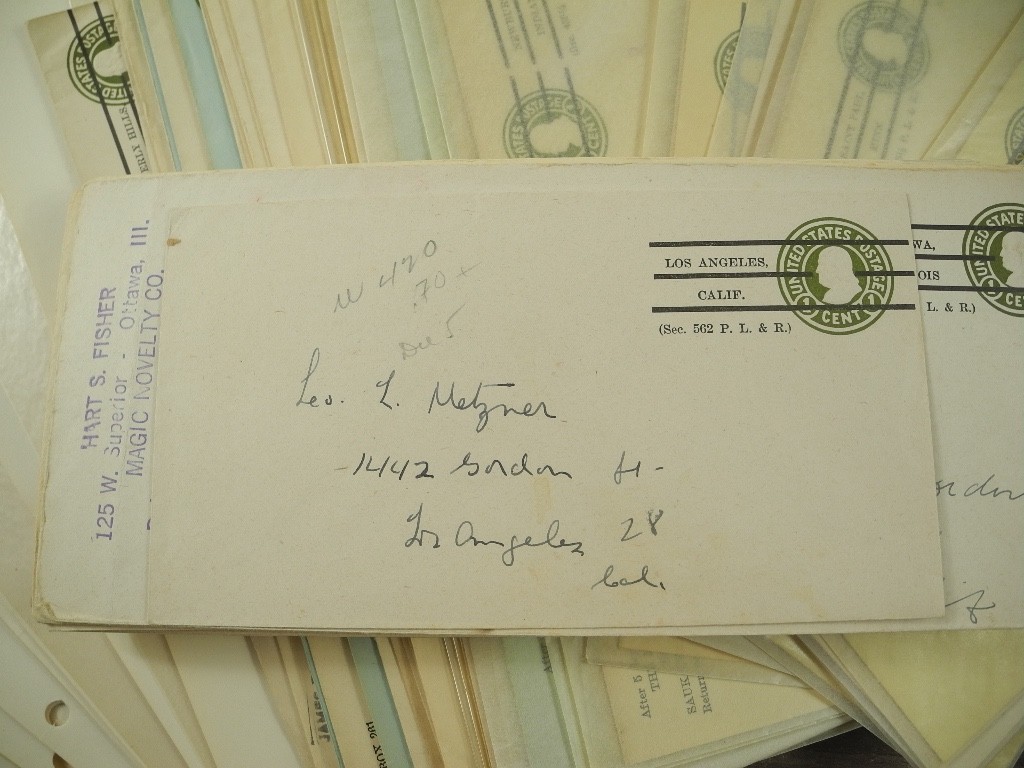 UNITED STATES POSTAGE
ERLY HILLS
UNITED STATES POSTAGE
CENT
HART S. FISHER
125 W. Superior - Ottawa, Ill.
MAGIC NOVELTY CO.
W 470
.70+
LOS ANGELES,
CALIF.
(Sec. 562 P. L. & R.)
UNITED STATES POSTAGE
1 CENT 1
WA,
OIS
L. & R.)
Leo. L. Metzner
-1442 Gordon St-
Los Angeles 28
Cal.
After 5
SAUK
Return
JAMES